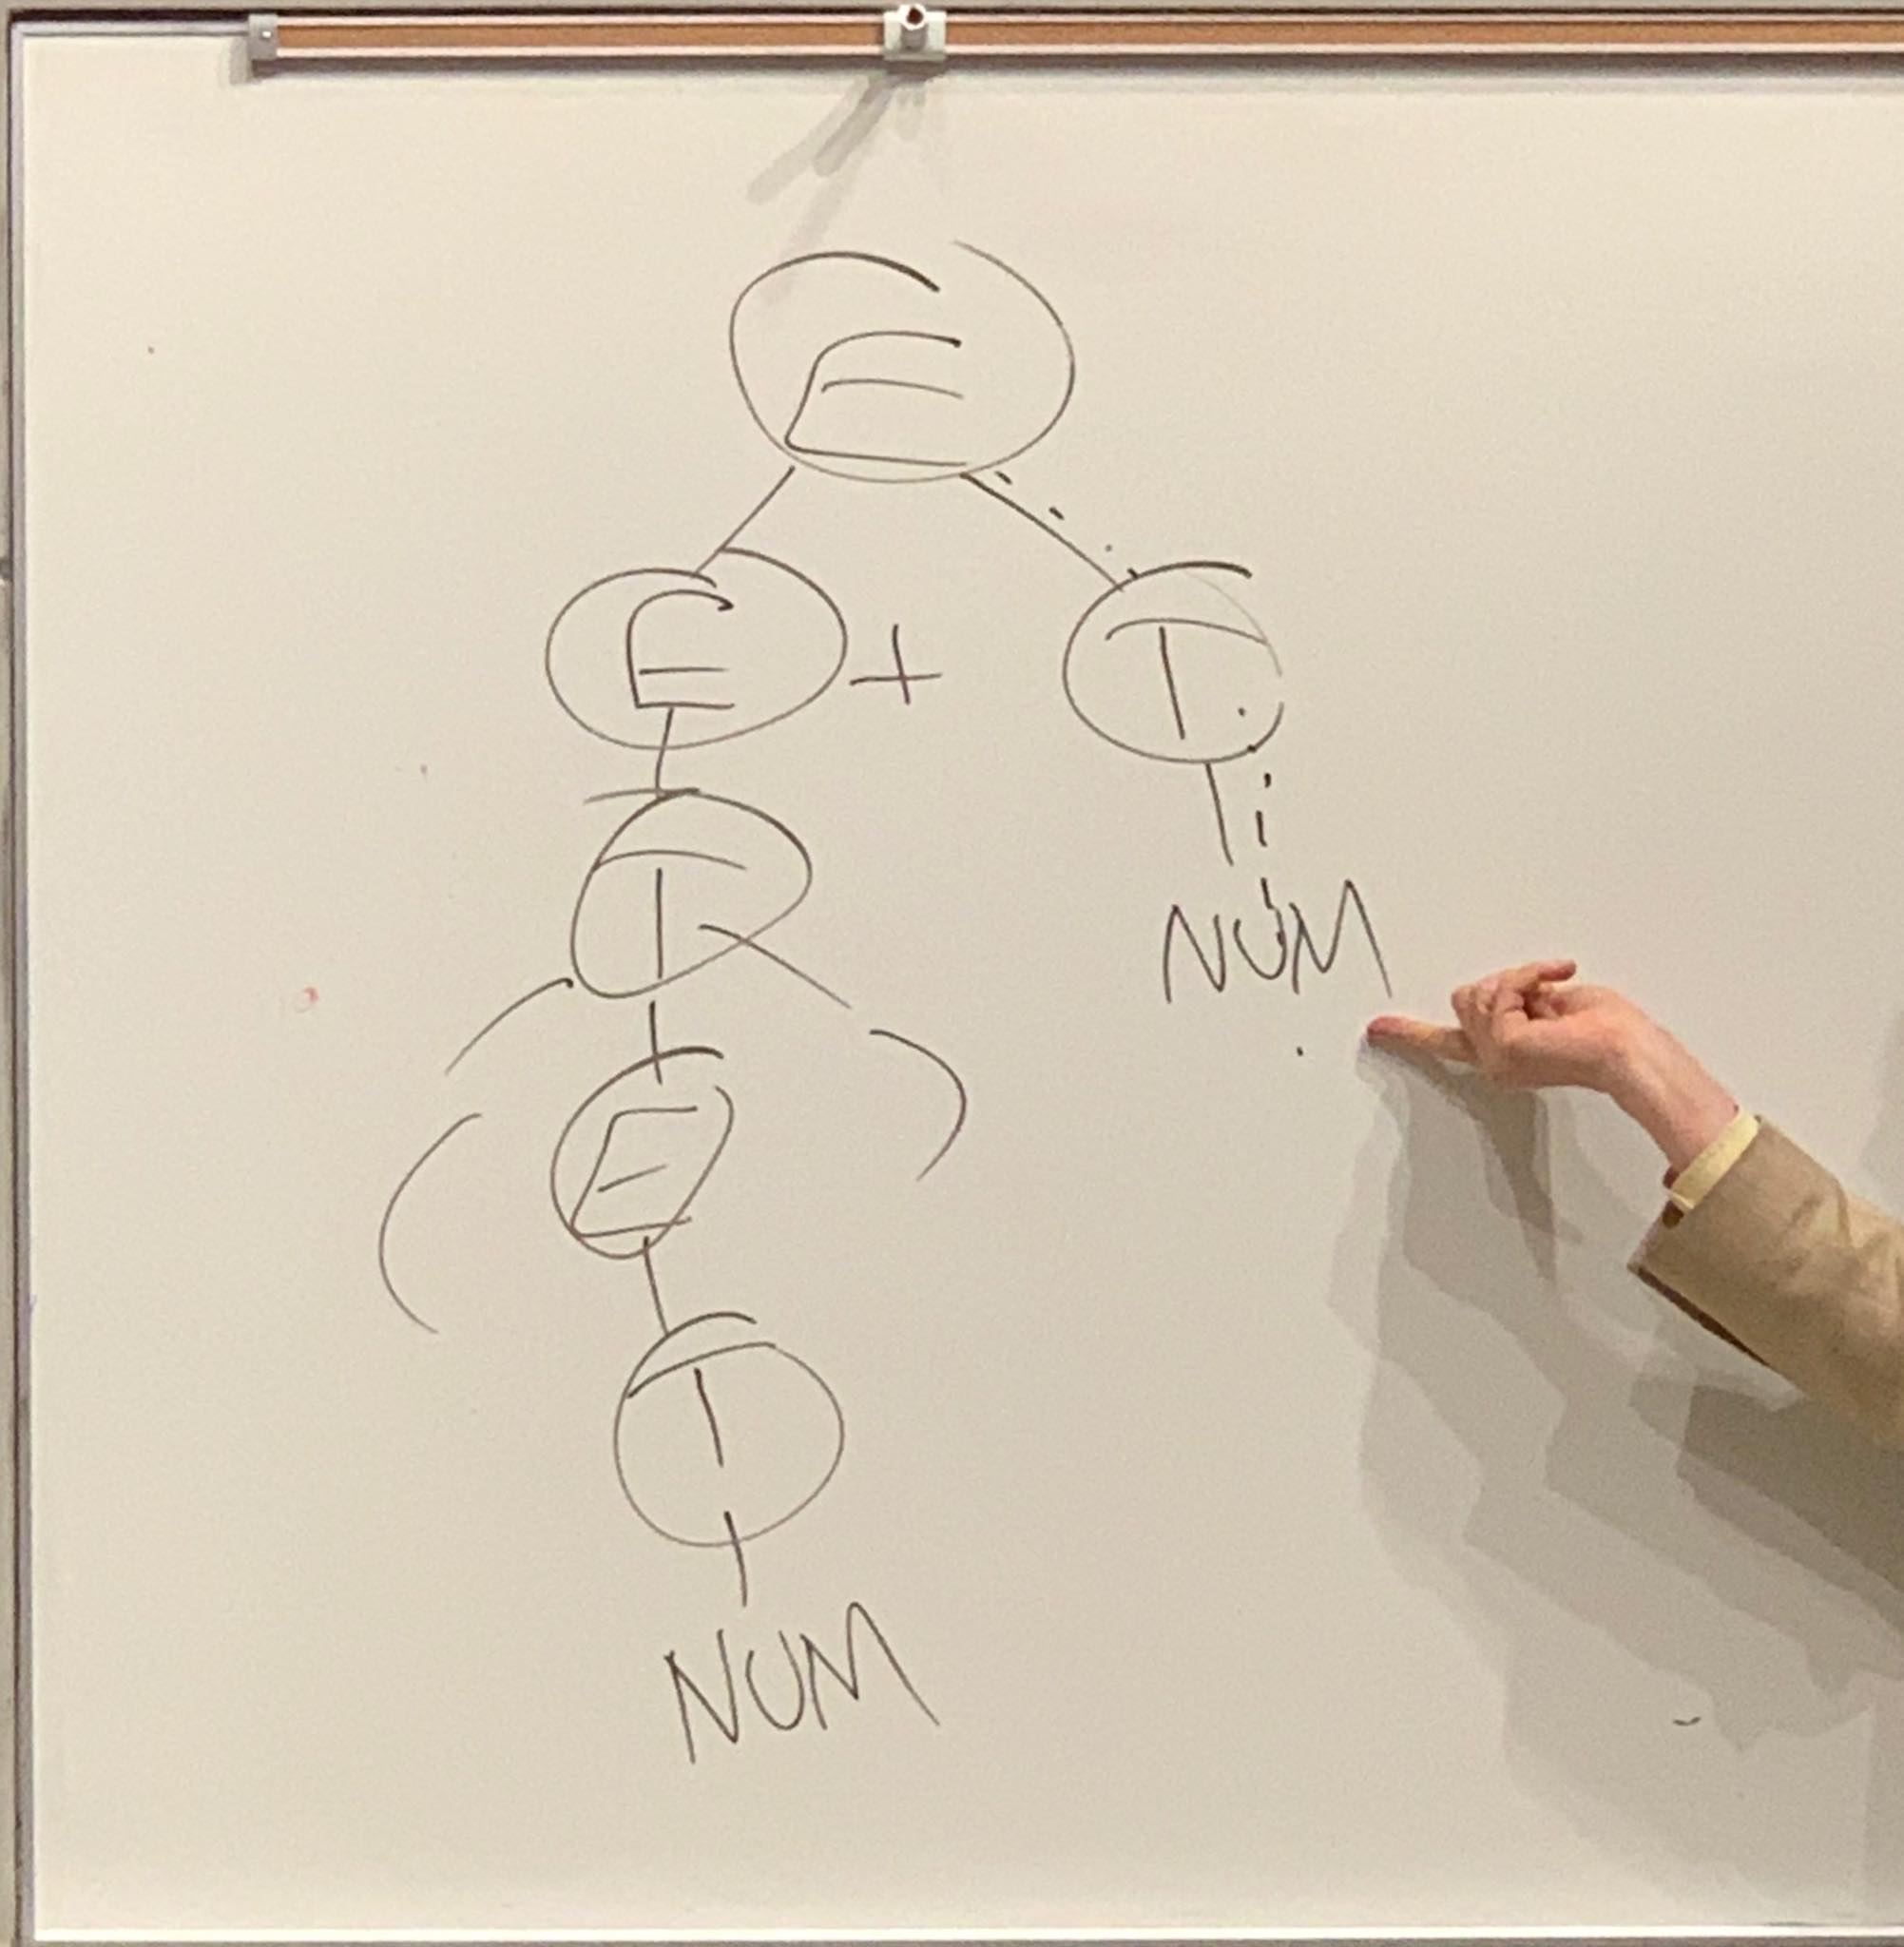 E
E + T
T NUM
( E )
T
NUM